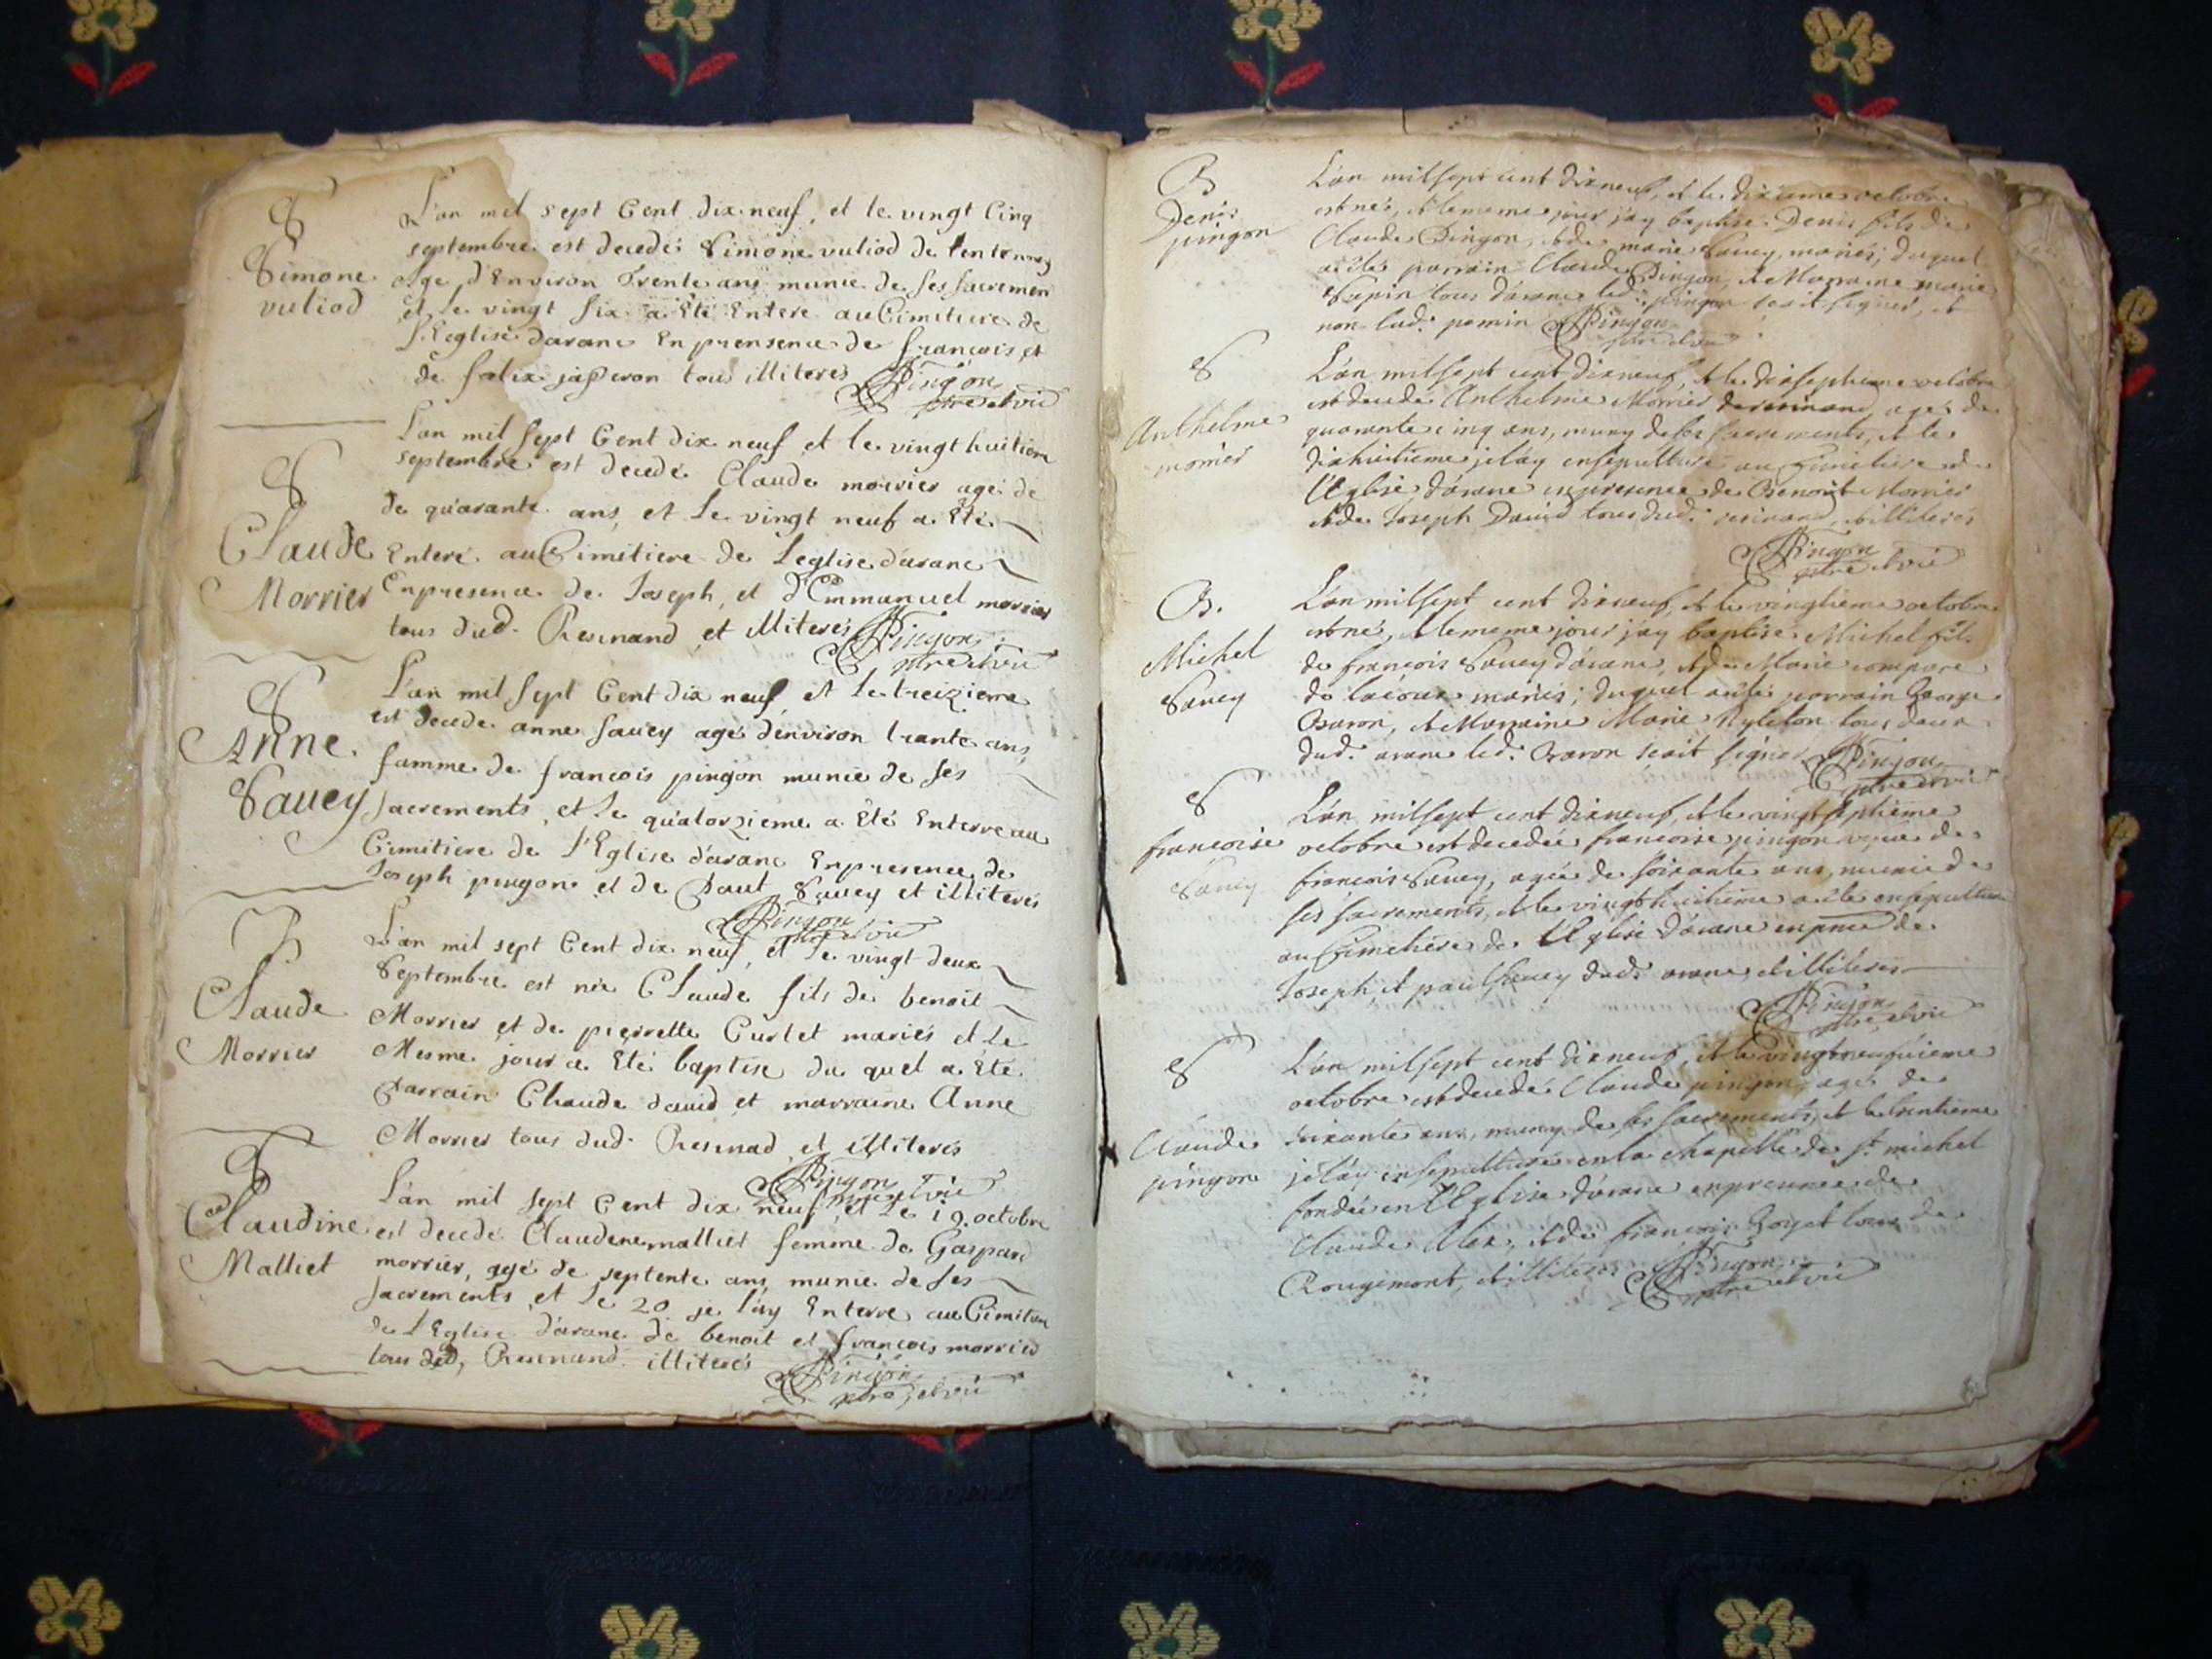 S
Simone
vuliod
L'an mil sept Cent dix neuf, et le vingt Cinq
septembre est decedé Simone vuliod de
age d'Environ Trente ans munie de ses sacremen
et le vingt six a Eté Enteré au Cimitiere de
l'Eglise d'aranc En prensence de francois et
de felix tous illiterés Pingon
ptre et vic
S
Claude
Morrier
L'an mil sept Cent dix neuf et le vingt huitiem
septembre est decedé Claude morrier agé de
de quarante ans, et le vingt neuf a Eté
Enteré au Cimitiere de Leglise d'aranc
En presence de Joseph, et d'Emmanuel morrier
tous dud. Resinand et illiterés Pingon
ptre et vic
S
Anne
Sauey
L'an mil sept Cent dix neuf et le treizieme
est decede anne sauey agé d'environ trante ans,
famme de francois pingon munie de ses
sacrements, et le quatorzieme a Eté Enterre au
Cimitiere de l'Eglise d'aranc En presence de
Joseph pingon et de Paul Sauey et illiterés
Pingon
ptre et vic
B
Claude
Morrier
L'an mil sept Cent dix neuf, et le vingt deux
Septembre est née Claude fils de benoit
Morrier et de pierrette Curlet mariés et le
Mesme jour a Eté baptise du quel a Eté
Parrain Claude david et marraine Anne
Morrier tous dud. Resinad et illiterés
Pingon ptre et vic
S
Claudine
Malliet
L'an mil sept Cent dix neuf, et Le 19. octobre
est decedé Claudene malliet femme de Gaspard
morrier, agé de septente ans, munie de ses
sacrements et le 20 je l'ay Enterre au Cimitier
de l'Eglise d'aranc de benoit et francois morrier
tous dud, Resinand illiterés Pingon
ptre, et vic
B
Denis
pingon
L'an mil sept cent dixneuf, et le dixieme octobre
est né, et le meme jour j'ay baptisé Denis fils de
Claude Pingon, et de marie Sauey, mariés; duquel
a été parrain Claude Pingon, et Marraine marie
Sapin tous d'aranc led. pingon scait signer, et
non lad. Pingon
ptre et vic
S
Anthelme
morrier
L'an mil sept cent dixneuf, et le dixseptieme octobre
est decedé Anthelme Morrier de resinand, agé de
quarante cinq ans, muny de ses sacrements, et le
dixhuitieme je l'ay ensepulturé au Cimetiere de
l'Eglise d'aranc en presence de Benoit Morrier
et de Joseph David tous dud. resinand, et illiterés
Pingon
ptre et vic
B.
Michel
Sauey
L'an mil sept cent dixneuf, et le vingtieme octobre
est né, et le meme jour j'ay baptisé Michel fils
de francois Sauey d'aranc, et de Marie compare
de lacoux mariés; duquel a été parrain George
Baron, et Marraine Marie tous deux
dud. aranc led. Baron scait signer Pingon
ptre et vic
S
francoise
Sauey
L'an mil sept cent dixneuf, et le vingt septieme
octobre est decedée francoise pingon veuve de
francois Sauey, agée de soixante ans, munie de
ses sacrements, et le vingt huitieme a été ensepulturé
au Cimetiere de l'Eglise d'aranc en pnce de
Joseph, et paul Sauey dud. aranc et illiterés
Pingon
ptre et vic
S
Claude
pingon
L'an mil sept cent dixneuf, et le vingtneufvieme
octobre est decedé Claude pingon, agé de
soixante ans, muny de ses sacrements, et le trentieme
je l'ay ensepulturé en la chapelle de st. michel
fondée en l'Eglise d'aranc en presence de
Claude et de francois tous de
Rougemont, et illiterés Pingon
ptre et vic